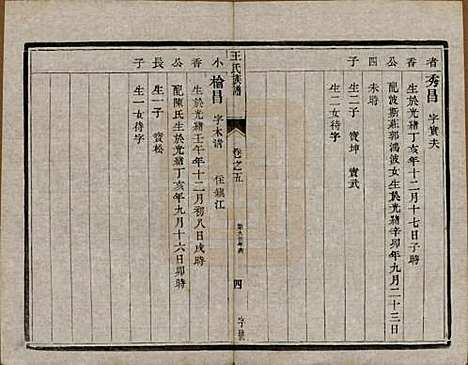 耆 秀昌 字實夫
生於光緒丁亥年十二月十七日子時
配波斯燕郭鴻波女生於光緒辛卯年九月二十三日
四 未時
公
子 生二子 寶坤 寶武
生二女待字
王氏族譜
卷之五
四
小 檜昌 字木譜 住鎮江
香 生於光緒壬午年十二月初八日戌時
公 配陳氏生於光緒丁亥年九月十六日卯時
長 生一子 寶松
子 生一女待字